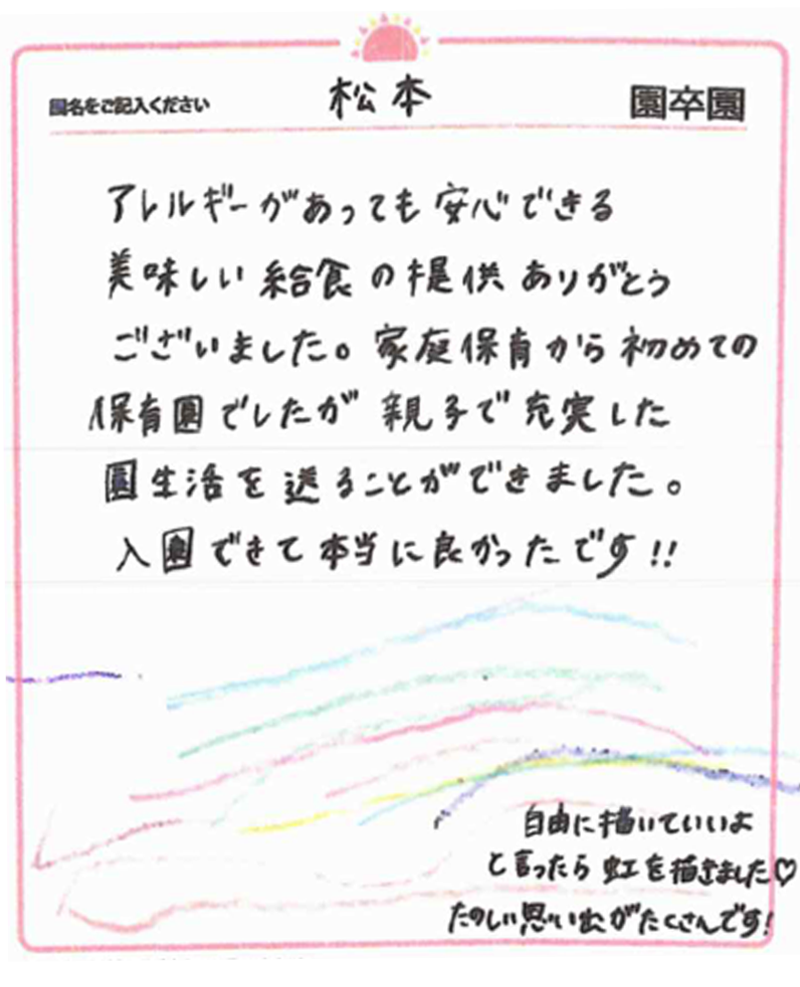 園名をご記入ください 松本 園卒園
アレルギーがあっても安心できる
美味しい給食の提供ありがとう
ございました。家庭保育から初めての
保育園でしたが親子で充実した
園生活を送ることができました。
入園できて本当に良かったです!!
自由に描いていいよ
と言ったら虹を描きました♡
たのしい思い出がたくさんです!